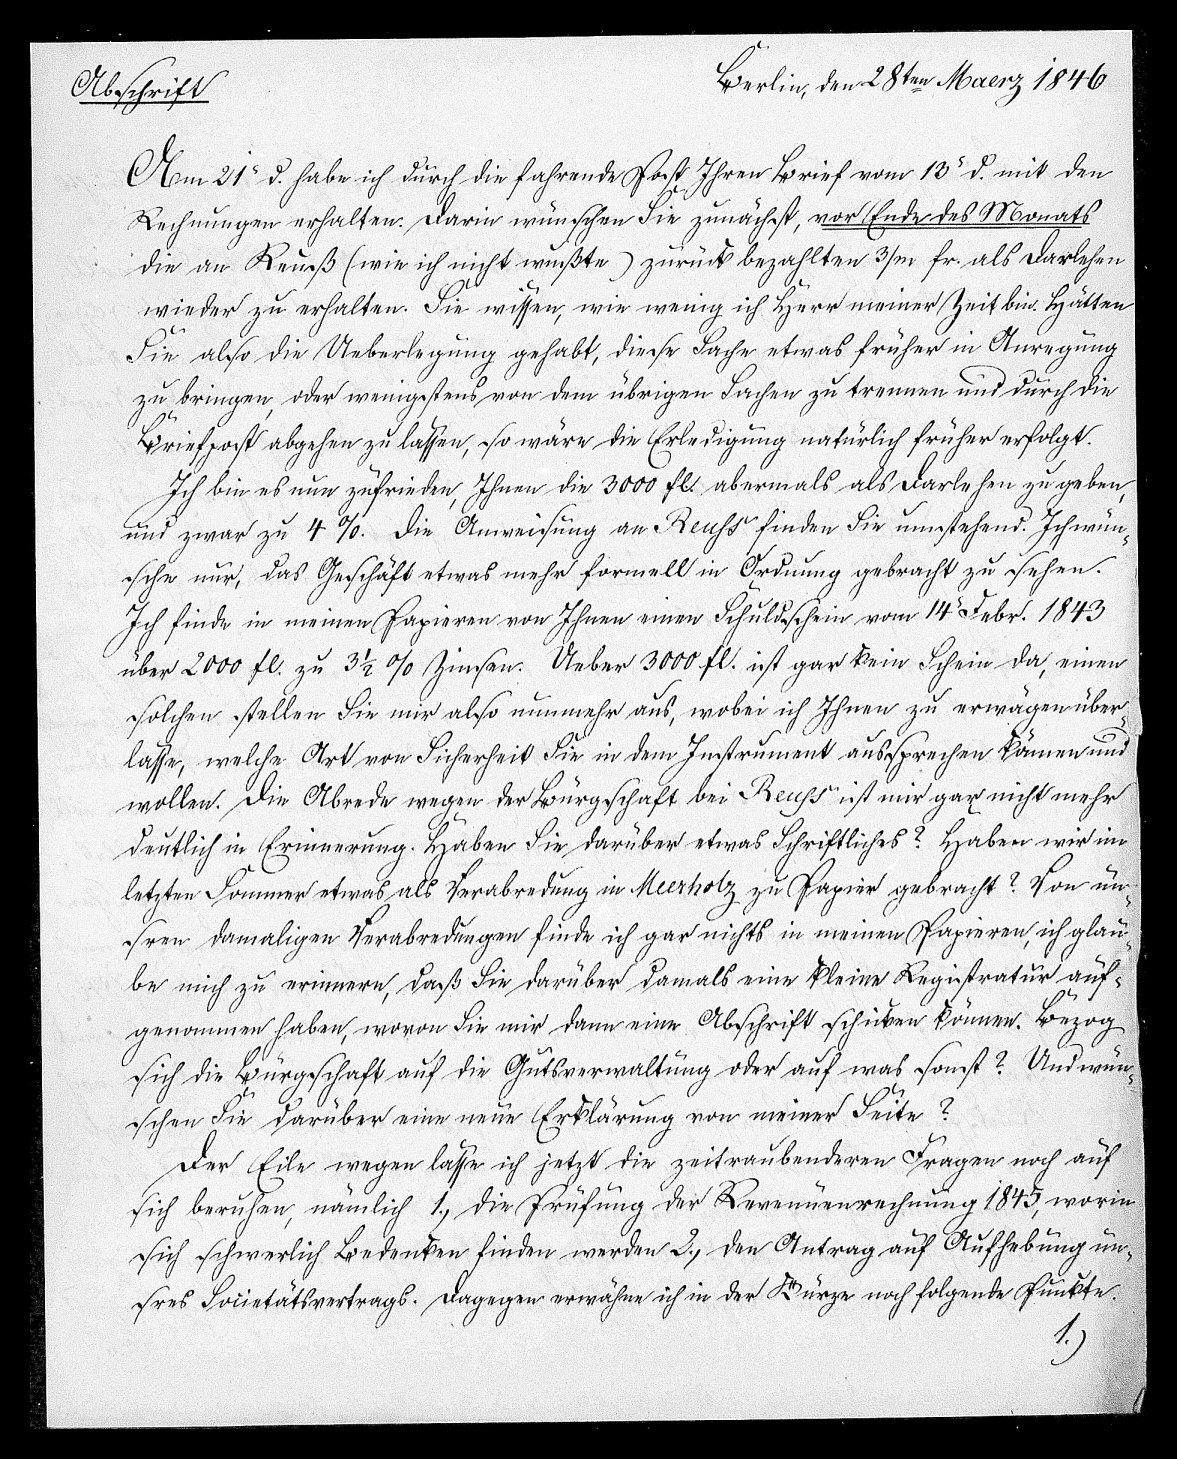 Abschrift
Berlin, den 28ten Maerz 1846
Am 21s d. habe ich durch die fahrende Post Ihren Brief vom 13s d. mit den
Rechnungen erhalten. Darin wünschen Sie zunächst, vor Ende des Monats
die an Reuß (wie ich nicht wußte) zurück bezahlten 3/m fr. als Darlehen
wieder zu erhalten. Sie wissen, wie wenig ich Herr meiner Zeit bin. Hätten
Sie also die Ueberlegung gehabt, diese Sache etwas früher in Anregung
zu bringen, oder wenigstens von dem übrigen Sachen zu trennen und durch die
Briefpost abgehen zu lassen, so wäre die Erledigung natürlich früher erfolgt.
Ich bin es nun zufrieden, Ihnen die 3000 fl. abermals als Darlehen zu geben,
und zwar zu 4 %. Die Anweisung an Reuss finden Sie umstehend. Ich wün-
sche nur, das Geschäft etwas mehr formell in Ordnung gebracht zu sehen.
Ich finde in meinen Papieren von Ihnen einen Schuldschein vom 14s Febr. 1843
über 2000 fl. zu 3½ % Zinsen. Ueber 3000 fl. ist gar kein Schein da, einen
solchen stellen Sie mir also nunmehr aus, wobei ich Ihnen zu erwägen über-
lasse, welche Art von Sicherheit Sie in dem Instrument aussprechen könen und
wollen. Die Abrede wegen der Bürgschaft bei Reuss ist mir gar nicht mehr
deutlich in Erinnerung. Haben Sie darüber etwas Schriftliches? Haben wir im
letzten Sommer etwas als Verabredung in Meerholz zu Papier gebracht? Von un-
sren damaligen Verabredungen finde ich gar nichts in meinen Papieren, ich glau-
be mich zu erinnern, daß Sie darüber damals eine kleine Registratur auf-
genommen haben, wovon Sie mir dann eine Abschrift schicken können. Bezog
sich die Bürgschaft auf die Gutsverwaltung oder auf was sonst? Und wün-
schen Sie darüber eine neue Erklärung von meiner Seite?
Der Eile wegen lasse ich jetzt die zeitraubenderen Fragen noch auf
sich beruhen, nämlich 1., die Prüfung der Revenüenrechnung 1845, worin
sich schwerlich Bedenken finden werden 2., den Antrag auf Aufhebung un-
sres Societätsvertrags. Dagegen erwähne ich in der Kürze noch folgende Punkte.
1.)